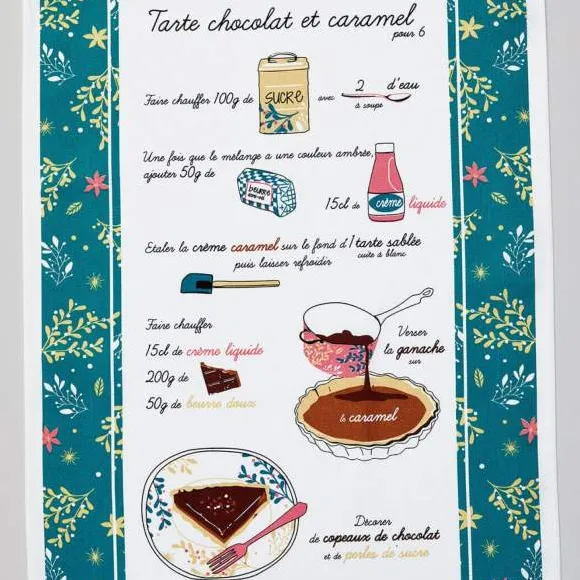 Tarte chocolat et caramel
pour 6
Faire chauffer 100g de SUCRE avec 2 d'eau
à soupe
Une fois que le mélange a une couleur ambrée,
ajouter 50g de beurre demi-sel
15cl de crème liquide
Etaler la crème caramel sur le fond d'1 tarte sablée
cuite à blanc
puis laisser refroidir
Faire chauffer
15cl de crème liquide
200g de
50g de beurre doux
Verser
la ganache
sur
le caramel
Décorer
de copeaux de chocolat
et de perles de sucre